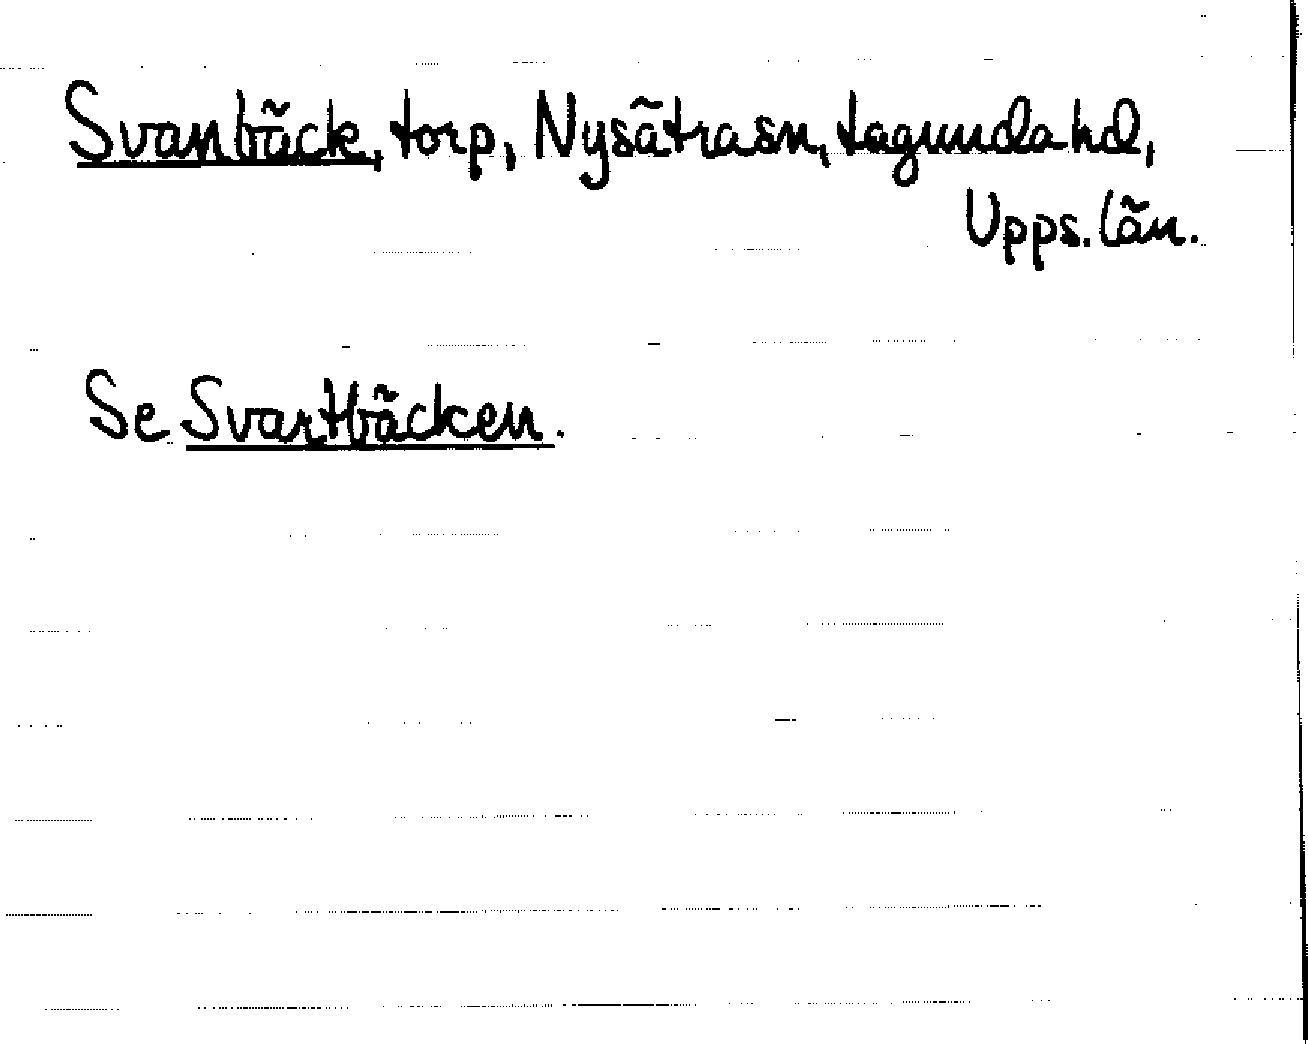 Svanbäck, torp, Nysätra sn, Lagunda hd,
Upps. län.
Se Svartbäcken.